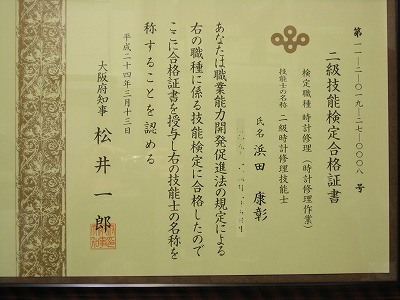 第一一-二-〇一九-二七-〇〇〇八号
二級技能検定合格証書
検定職種 時計修理(時計修理作業)
技能士の名称 二級時計修理技能士
氏名 浜田 康彰
あなたは職業能力開発促進法の規定による
右の職種に係る技能検定に合格したので
ここに合格証書を授与し右の技能士の名称を
称することを認める
平成二十四年三月十三日
大阪府知事 松井一郎